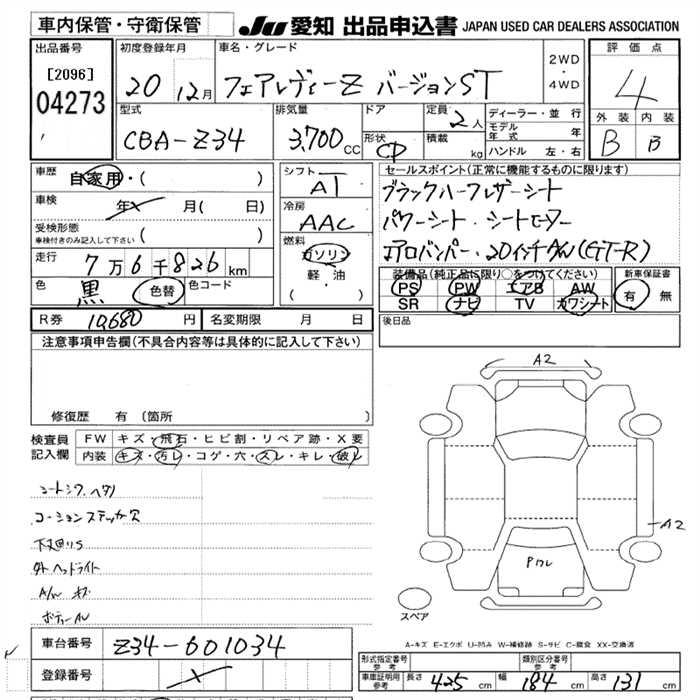 車内保管・守衛保管
JU 愛知 出品申込書 JAPAN USED CAR DEALERS ASSOCIATION
出品番号
[2096]
04273
初度登録年月
20 12月
車名・グレード
フェアレディーZ バージョンST
2WD
・
4WD
評価点
4
外装 内装
B B
型式
CBA-Z34
排気量
3,700 CC
ドア
形状
CP
定員
2人
積載
kg
ディーラー・並行
モデル年式 年
ハンドル 左・右
車歴
自家用・( )
車検
年 月( 日)
受検形態
車検付きのみ記入して下さい ( )
走行
7万6千826km
色
黒
色替
色コード
シフト
AT
冷房
AAC
燃料
ガソリン
軽・油
( )
セールスポイント(正常に機能するものに限ります)
ブラックハーフレザーシート
パワーシート・シートヒーター
エアロバンパー・20インチAW(GT-R)
装備品(純正品に限り○をつけてください)
PS PW エアB AW
SR ナビ TV カワシート
新車保証書
有 無
後日品
R券 10,680円
名変期限 月 日
注意事項申告欄(不具合内容等は具体的に記入して下さい)
修復歴 有(箇所
検査員
記入欄
FW キズ・飛石・ヒビ割・リペア跡・X要
内装 キズ・汚レ・コゲ・穴・スレ・キレ・破レ
シートシワ・ヘタリ
コーションステッカー欠
下廻りS
外 ヘッドライト
A/W キズ
ボディーAU
A2
A2
Pワレ
スペア
A-キズ E-エクボ U-凹み W-補修跡 S-サビ C-腐食 XX-交換済
車台番号
Z34-601034
登録番号
形式指定番号
参考
類別区分番号
参考
車庫証明用
参考
長さ 425cm 幅 184cm 高さ 131cm